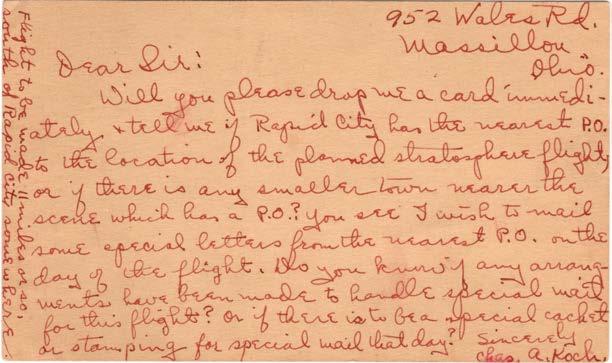 952 Wales Rd.
Massillon
Ohio.
Dear Sir:
Will you please drop me a card immedi-
ately & tell me if Rapid City has the nearest P.O.
to the location of the planned stratosphere flight,
or if there is any smaller town nearer the
scene which has a P.O.? You see I wish to mail
some special letters from the nearest P.O. on the
day of the flight. Do you know if any arrang
ments have been made to handle special mail
for this flight? or if there is to be a special cachet
or stamping for special mail that day? Sincerely
Chas. A. Koch.
Flight to be made 11 miles or so,
south of Rapid City somewhere